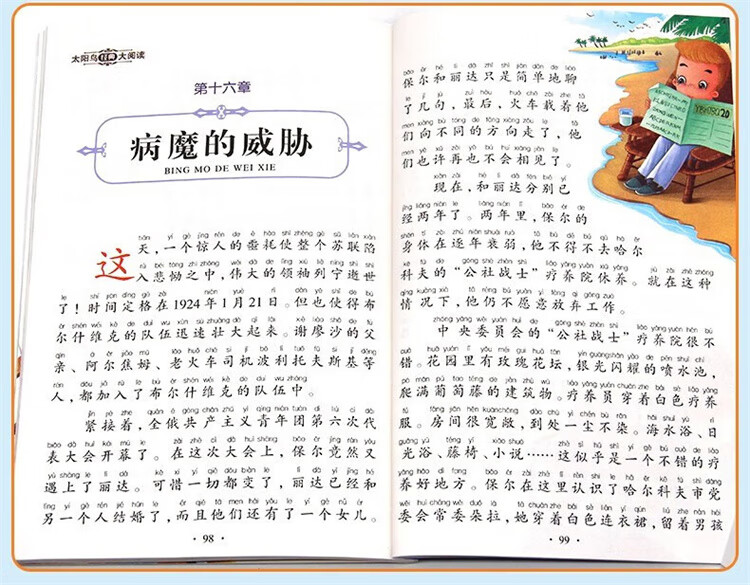 太阳鸟经典大阅读
第十六章
病魔的威胁
BING MO DE WEI XIE
这天，一个惊人的噩耗使整个苏联陷
入悲恸之中，伟大的领袖列宁逝世
了！时间定格在1924年1月21日。但也使得布
尔什维克的队伍迅速壮大起来。谢廖沙的父
亲、阿尔焦姆、老火车司机波利托夫斯基等
人，都加入了布尔什维克的队伍中。
紧接着，全俄共产主义青年团第六次代
表大会开幕了。在这次大会上，保尔竟然又
遇上了丽达。可惜一切都变了，丽达已经和
另一个人结婚了，而且他们还有了一个女儿。
·98·
保尔和丽达只是简单地聊
了几句，最后，火车载着他
们向不同的方向走了，他
们也许再也不会相见了。
现在，和丽达分别已
经两年了。两年里，保尔的
身体在逐年衰弱，他不得不去哈尔
科夫的“公社战士”疗养院休养。就在这种
情况下，他仍不愿意放弃工作。
中央委员会的“公社战士”疗养院很不
错。花园里有玫瑰花坛，银光闪耀的喷水池，
爬满葡萄藤的建筑物。疗养员穿着白色疗养
服。房间很宽敞，到处一尘不染。海水浴、日
光浴、藤椅、小说……这似乎是一个不错的疗
养好地方。保尔在这里认识了哈尔科夫市党
委会常委朵拉，她穿着白色连衣裙，留着男孩
·99·